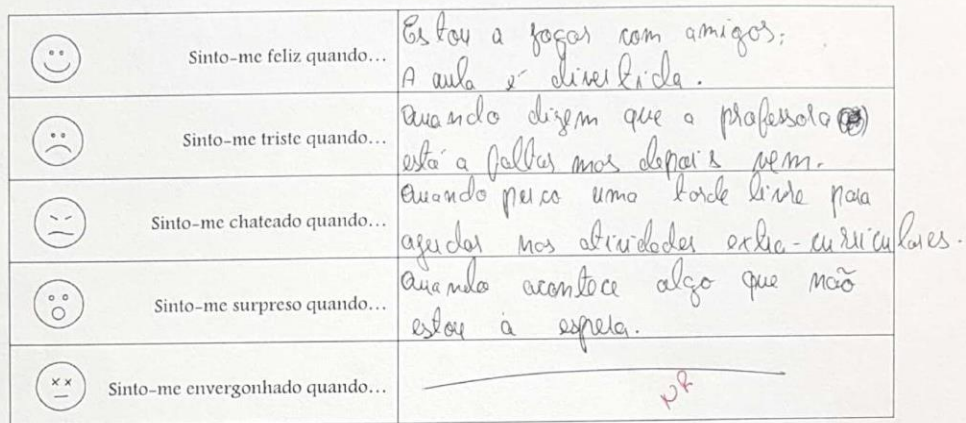 Sinto-me feliz quando...
Estou a jogar com amigos;
A aula é divertida.
Sinto-me triste quando...
Quando dizem que a professora
está a faltar mas depois vem.
Sinto-me chateado quando...
Quando perco uma tarde livre para
ajudar nas atividades extra-curriculares.
Sinto-me surpreso quando...
Quando acontece algo que não
estou à espera.
Sinto-me envergonhado quando...
NR